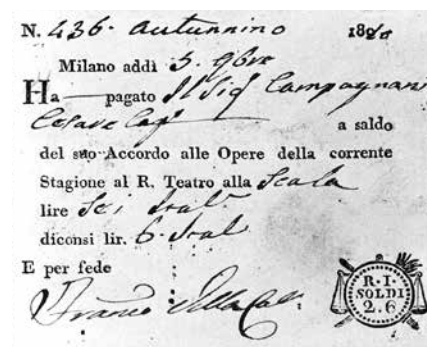 N. 436. autunnino 18
Milano addì 5. 9bre
Ha pagato Il Sig.r Campagnani
Cesare Cap. a saldo
del suo Accordo alle Opere della corrente
Stagione al R. Teatro alla Scala
lire Sei Ital.
diconsi lir. 6. Ital
E per fede
R. I.
SOLDI
2.6